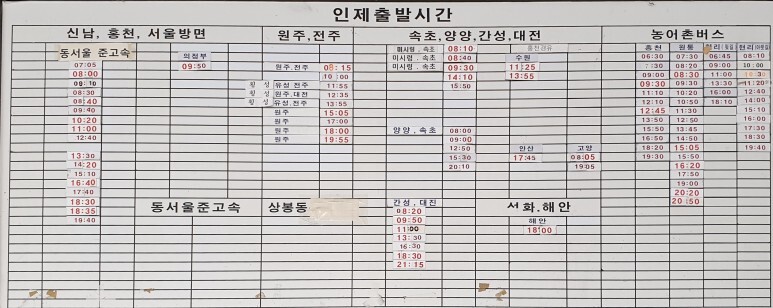 인제출발시간
신남, 홍천, 서울방면
동서울 준고속
07:05
08:00
08:30
08:40
09:40
10:20
11:00
12:40
13:30
14:20
15:10
16:40
17:40
18:30
18:35
19:40
의정부
09:50
동서울준고속
원주,전주
원주,전주 08:15
10:00
횡성 유성,전주 11:55
횡성 원주,대전 12:35
횡성 유성,전주 13:55
원주 15:05
원주 17:00
원주 18:00
원주 19:55
상봉동
속초,양양,간성,대진
미시령,속초 08:10
미시령,속초 08:40
미시령,속초 09:30
14:10
15:50
수원
11:25
13:55
양양,속초 08:00
09:30
12:50
15:30
20:10
안산
17:45
고양
08:05
19:00
간성,대진
08:20
09:50
11:00
13:50
16:30
18:30
21:15
서화,해안
해안
18:00
농어촌버스
홍천
06:30
7:30
09:00
09:30
11:10
12:10
13:50
16:50
18:20
19:30
원통
07:30
08:20
08:30
09:30
10:20
10:50
11:50
13:45
15:05
15:50
16:20
17:50
19:00
20:20
20:50
06:45
09:00
11:00
13:30
16:00
18:10
현리
08:10
09:00
11:20
12:40
14:00
15:10
16:00
17:30
18:00
19:40